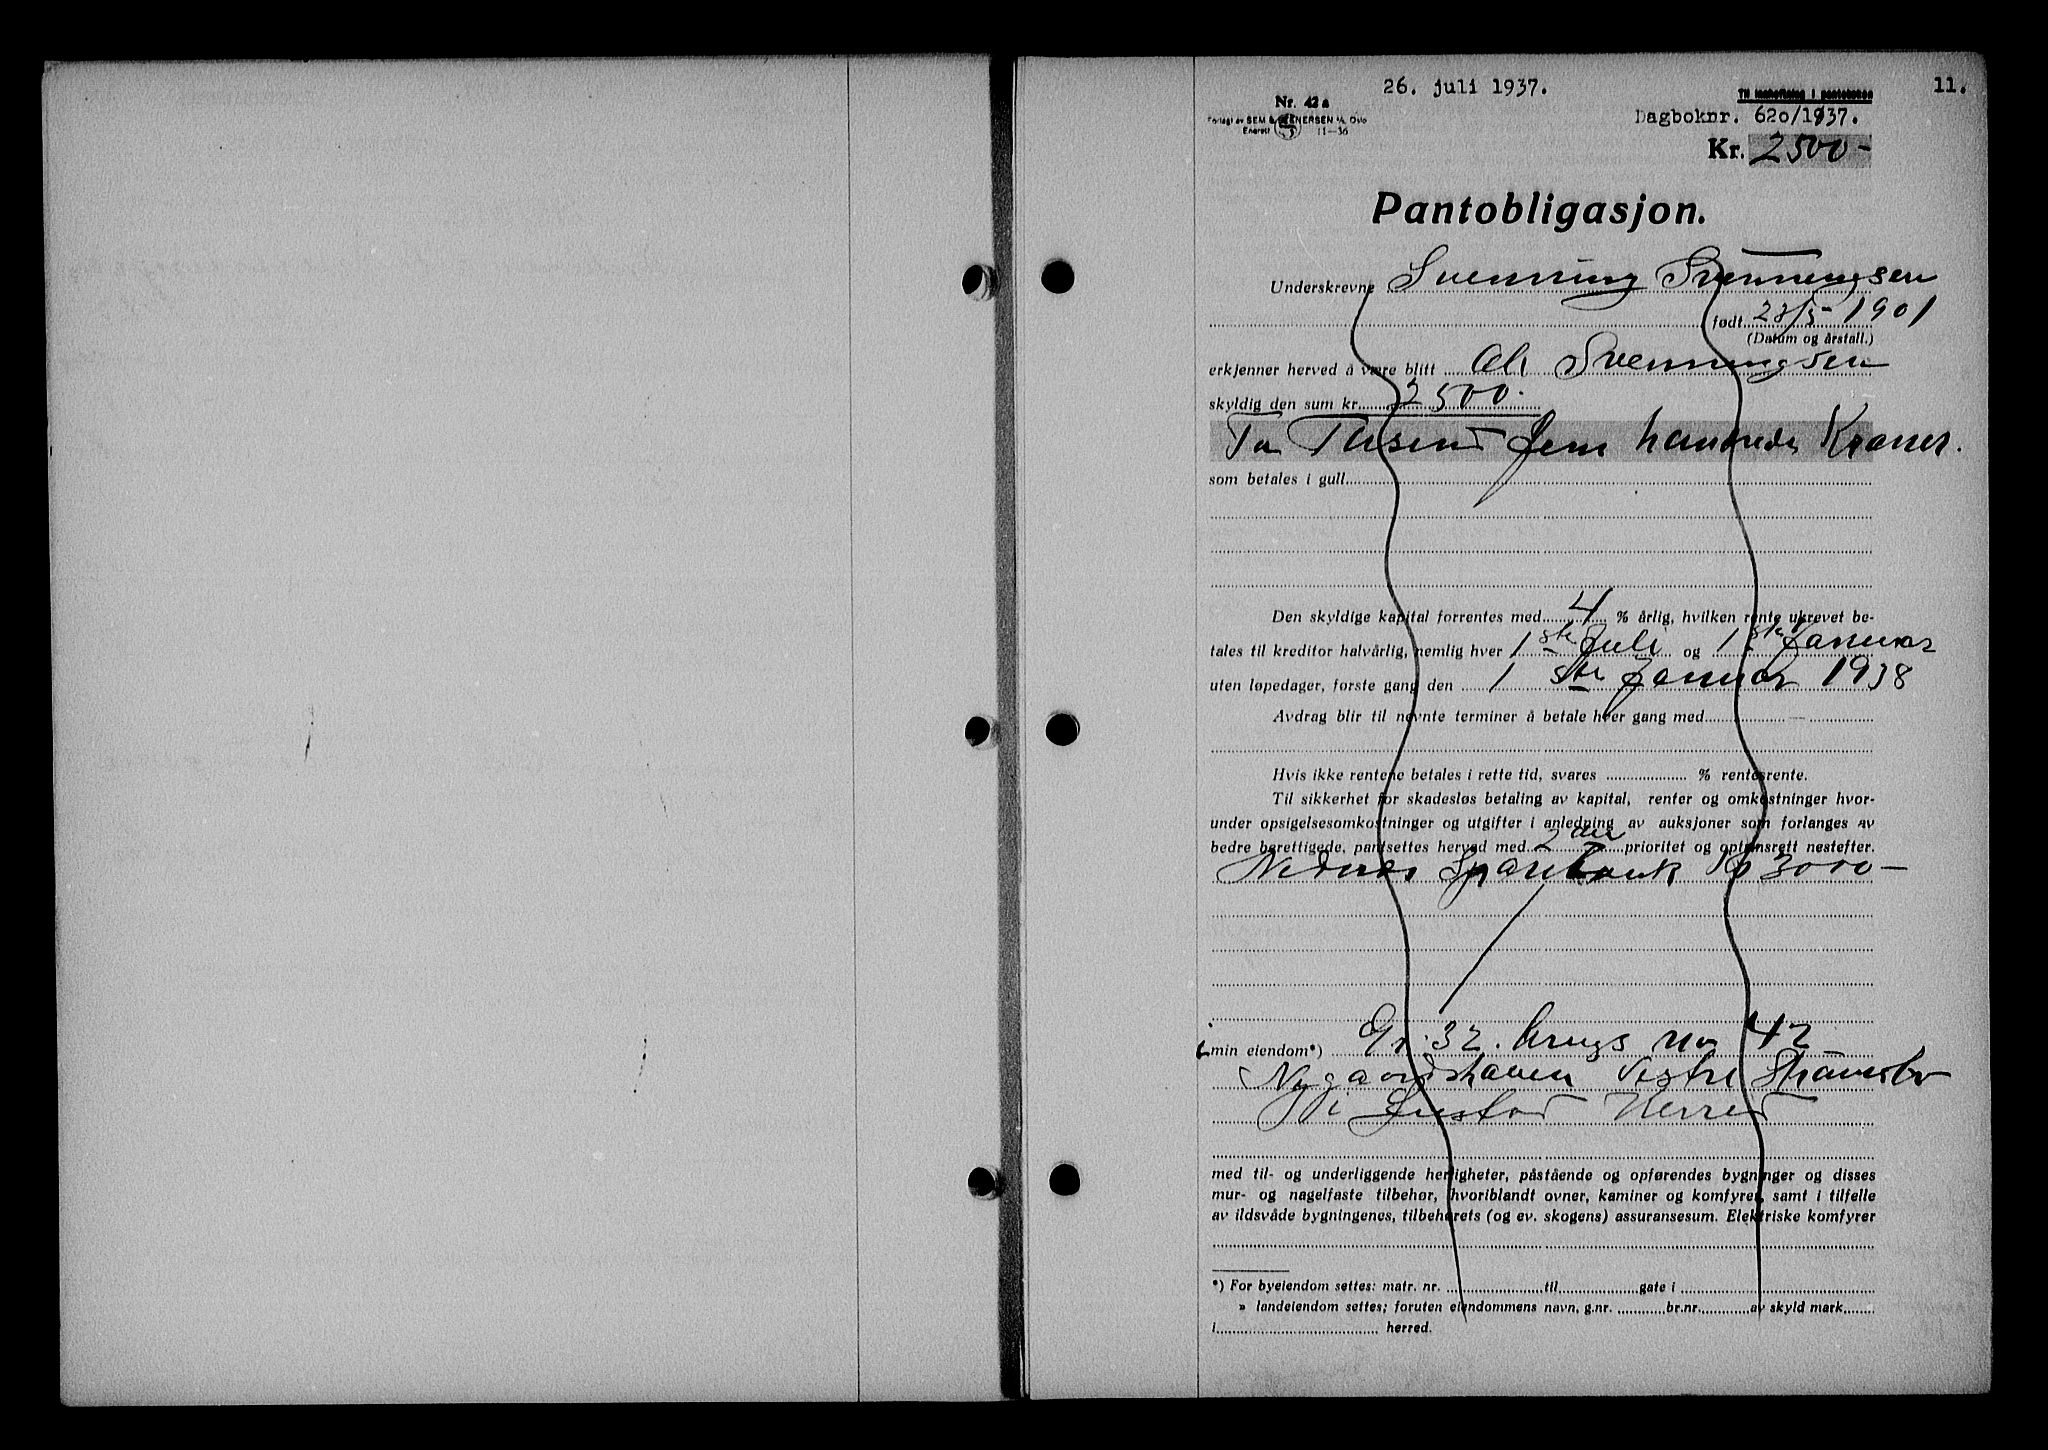 26. juli 1937.
11.
Til innheftning i panteboken
Nr. 42 a
Forlagt av SEM & STENERSEN A/S, Oslo
Enerett 11—36
Dagboknr. 620/1937.
Kr. 2500-
Pantobligasjon.
Underskrevne Svenning Svenningsen
født 23/5-1901
(Datum og årstall.)
erkjenner herved å være blitt Ole Svenningsen
skyldig den sum kr. 2500.
To Tusend fem hundrede Kroner.
som betales i gull
Den skyldige kapital forrentes med 4 % årlig, hvilken rente ukrevet be-
tales til kreditor halvårlig, nemlig hver 1ste Juli og 1ste Januar
uten løpedager, første gang den 1ste Januar 1938
Avdrag blir til nevnte terminer å betale hver gang med —
Hvis ikke rentene betales i rette tid, svares % rentesrente.
Til sikkerhet for skadesløs betaling av kapital, renter og omkostninger hvor-
under opsigelsesomkostninger og utgifter i anledning av auksjoner som forlanges av
bedre berettigede, pantsettes herved med 2den prioritet og optrinsrett nestefter.
Nednes Sparebank Kr 3000-
i min eiendom*) Gr. 32. brugs no 42
Nygaardshaven Vestre
i Herred
med til- og underliggende herligheter, påstående og opførendes bygninger og disses
mur- og nagelfaste tilbehør, hvoriblandt ovner, kaminer og komfyrer, samt i tilfelle
av ildsvåde bygningenes, tilbehørets (og ev. skogens) assuransesum. Elektriske komfyrer
*) For byeiendom settes: matr. nr. til gate i
» landeiendom settes; foruten eiendommens navn, g.nr. br.nr. av skyld mark
i herred.